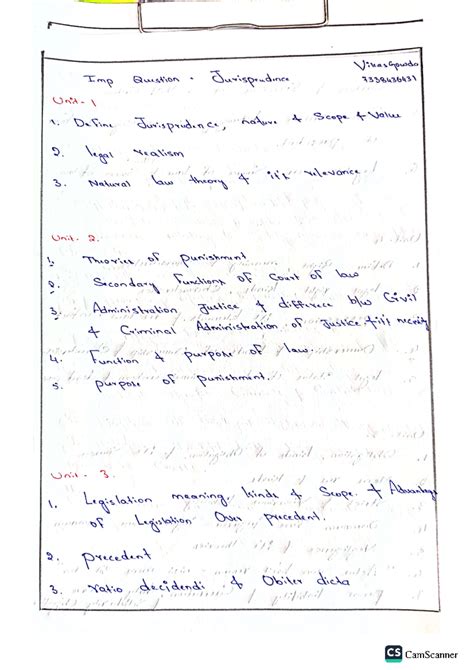 Vikas Gowda
7338436431
Imp Question - Jurisprudence
Unit - 1
1. Define Jurisprudence, nature & Scope & Value
2. legal realism
3. Natural law theory & it's relevance
Unit - 2.
1. Theories of punishment
2. Secondary Functions of Court of law
3. Administration Justice & differece b/w Civil
& Criminal Administration of Justice & it's
4. Function & purpose of law.
5. purpose of punishment.
Unit - 3.
1. Legislation meaning, kinds & Scope. & Advantage
of Legislation Over precedent.
2. precedent
3. ratio decidendi & Obiter dicta
CS CamScanner